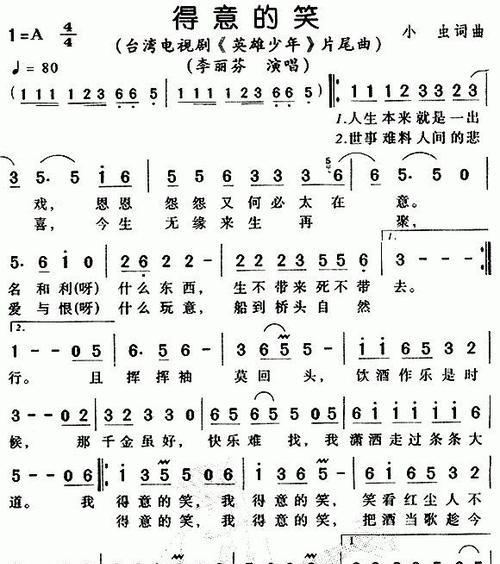 得意的笑
1=A 4/4
(台湾电视剧《英雄少年》片尾曲)
小 虫词曲
♩= 80
(李丽芬 演唱)
(111 123 66 5 111 123 66 5) ‖: 1112 323 23
1.人生本来就是一出
2.世事难料人间的悲
3 5· 5 i 6 5 5 6 3 3 6 5· 5 0
戏, 恩恩 怨怨又何必太在 意。
喜, 今生 无缘来生再 聚,
5· 6 i 0 2 6 2 2 - 2 2 3 5 5 6 1. 3 - - - :‖
名和利(呀) 什么东西, 生不带来死不带 去。
爱与恨(呀) 什么玩意, 船到桥头自然
2.
1 - - 05 6· 5 6 - 3 6 5 5 - i i 6 5 3 2
行。 且 挥挥袖 莫回 头, 饮酒作乐是时
3 - - 02 3 2 3 3 0 65 65 6 2 6 i i i i i 6
候, 那 千金虽好, 快乐难 找,我 潇洒走过条条大
5 - - 06 :‖ i 3 5 5 0 6 i 3 6 5 - i i 6 5 3 2
道。 我 得意的笑,我 得意的笑, 笑看红尘人不
得意的笑,我 得意的笑, 把酒当歌趁今
1